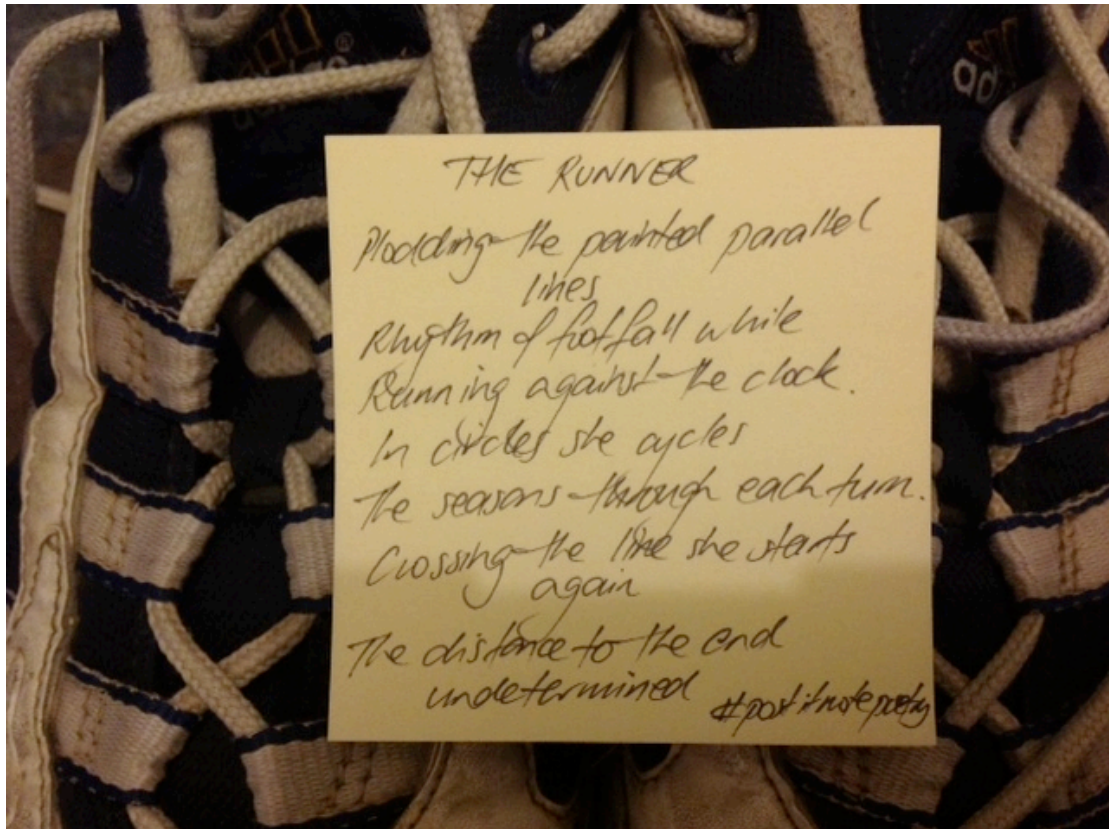 THE RUNNER
Plodding the painted parallel
lines
Rhythm of footfall while
Running against the clock.
In circles she cycles
The seasons through each turn.
Crossing the line she starts
again
The distance to the end
undetermined
#postitnotepoetry
ad